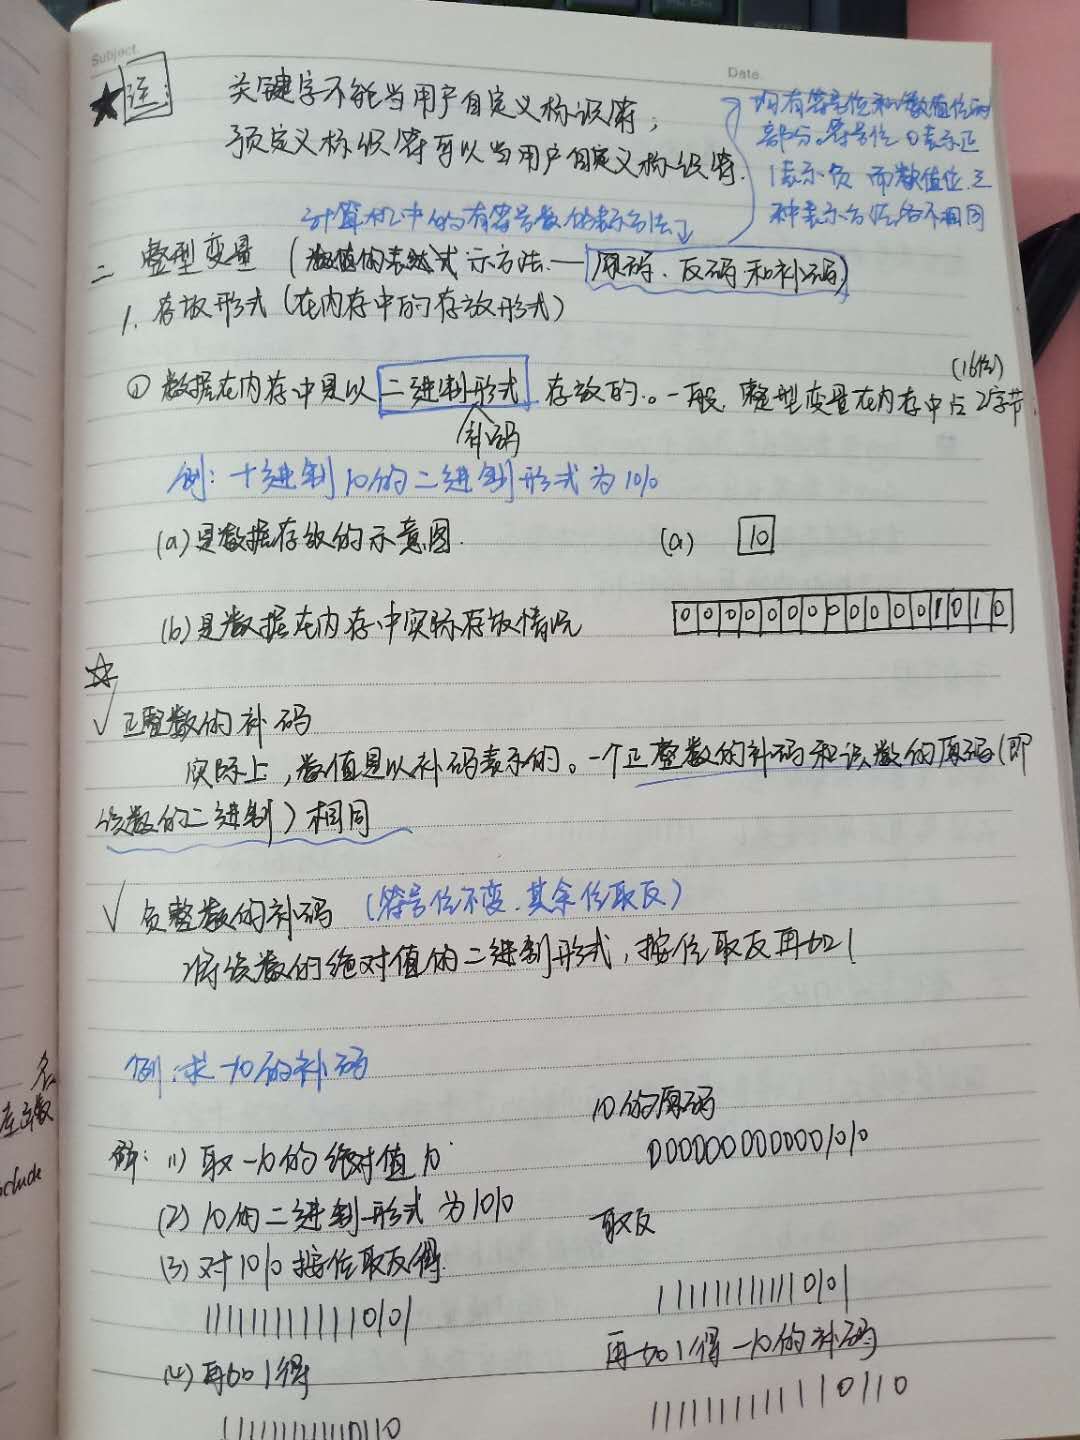 Subject.
Date.
★ 注:
关键字不能当用户自定义标识符;
预定义标识符可以当用户自定义标识符.
均有符号位和数值位两
部分。符号位0表示正
1表示负 而数值位三
种表示方法各不相同
计算机中的有符号数的表示方法
二 整型变量 (数值的表示方法——原码、反码和补码)
1. 存放形式(在内存中的存放形式)
(16位)
① 数据在内存中是以二进制形式存放的。一般,整型变量在内存中占2字节
补码
例:十进制10的二进制形式为1010
(a)是数据存放的示意图. (a) 10
(b)是数据在内存中实际存放情况 0000000000001010
☆
√ 正整数的补码
实际上,数值是以补码表示的。一个正整数的补码和该数的原码(即
该数的二进制)相同
√ 负整数的补码 (符号位不变.其余位取反)
将该数的绝对值的二进制形式,按位取反再加1
例:求-10的补码
10的原码
0000000000001010
解: (1) 取-10的绝对值10
(2) 10的二进制形式为1010
取反
(3) 对1010按位取反得
1111111111110101
1111111111110101
再加1得-10的补码
(4) 再加1得
1111111111110110
1111111111110110
名
clude